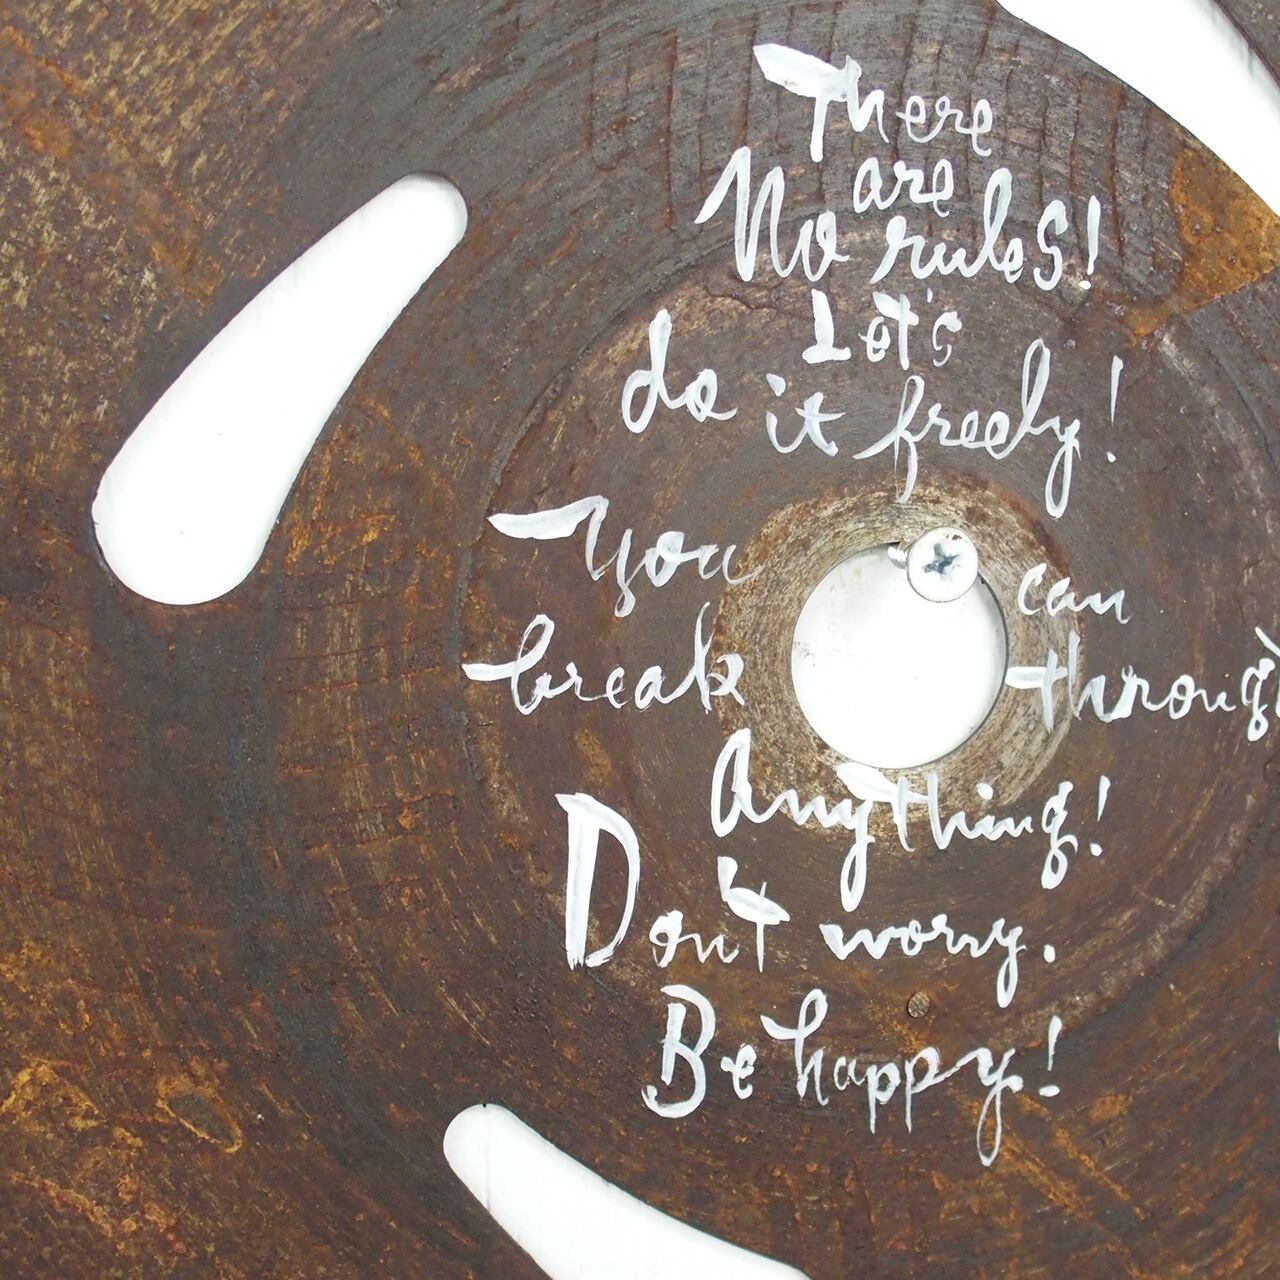 There
are
No rules!
Let's
do it freely!
You can
break through
Anything!
Don't worry.
Be happy!